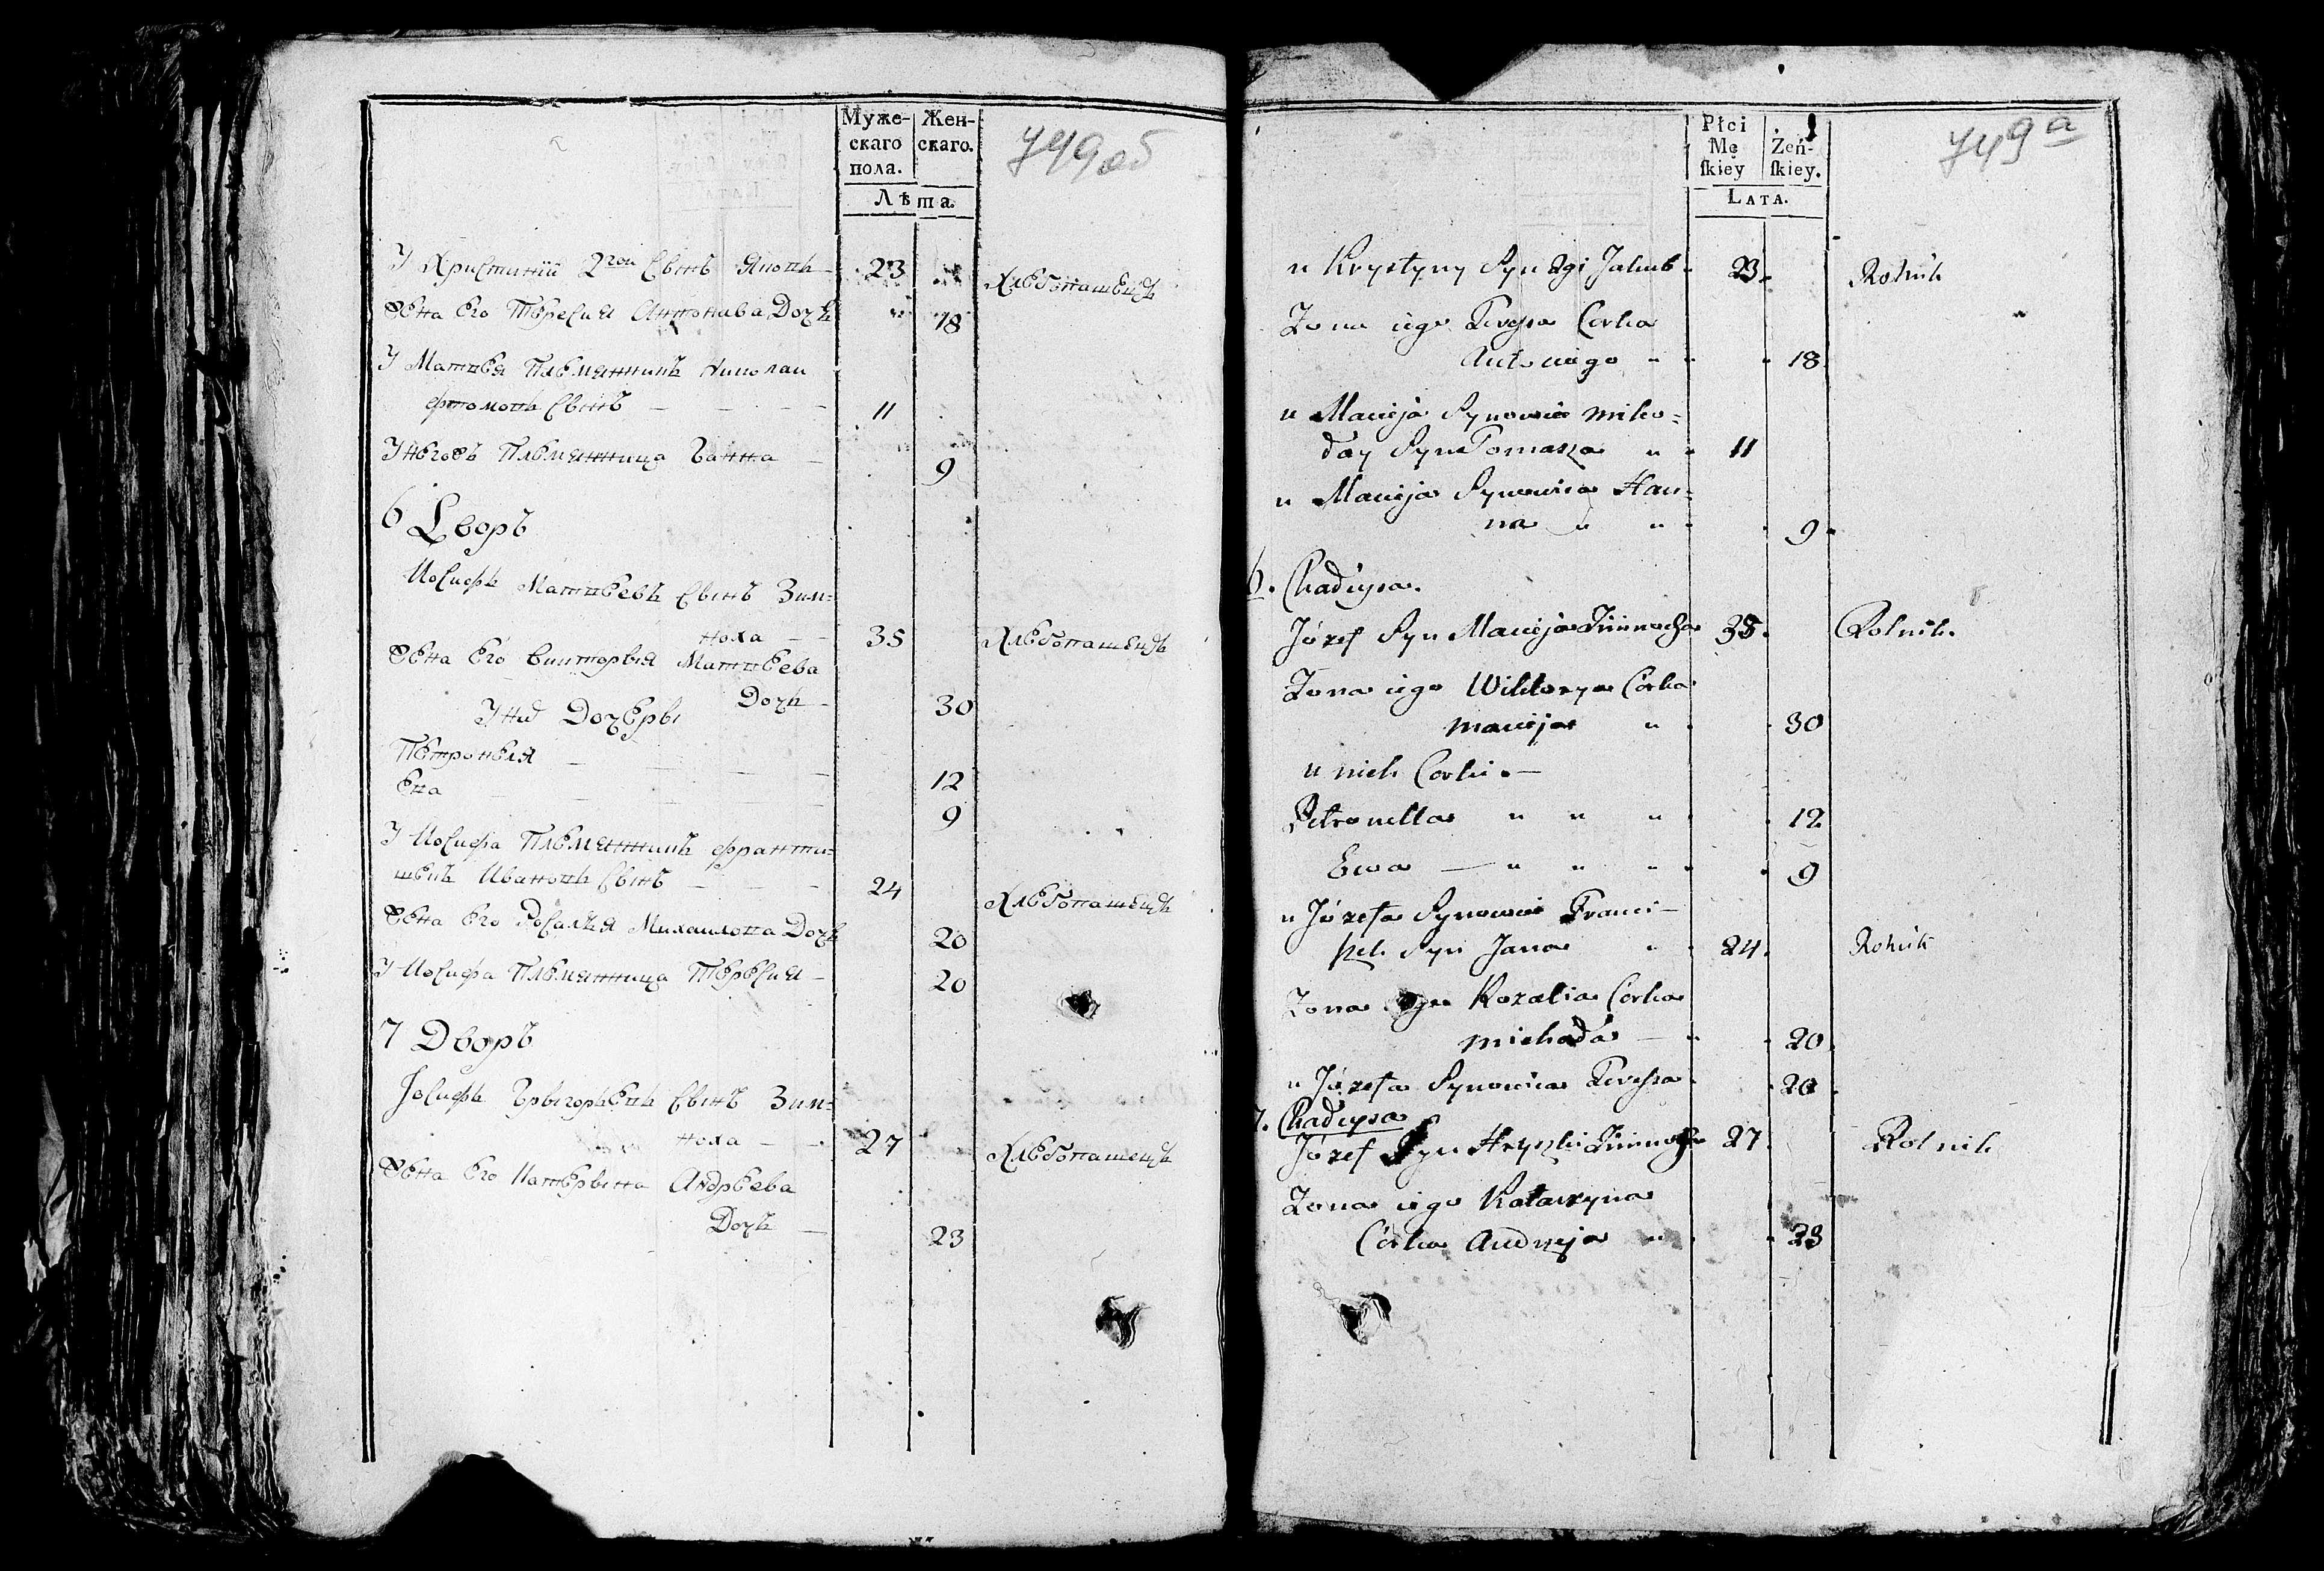 Муже-
скаго
пола.
Жен-
скаго.
Лѣта.
749 об
У Христинiи 2гои Свiнъ Якопь 23 Хлебопашецъ
Жена Его Тересия Антонива Дочь 18
У Матвея Племянникъ Николаи
Свiнъ 11
У негожъ Племянница Ганна 9
6 Дворъ
Иосифъ Матвеевъ Свiнъ Зим=
ноха 35 Хлебопашецъ
Жена Его Викторыя Матвеева
Дочь 30
У них Дочеры
Петронеля 12
Ева 9
У Иосифа Племянникъ Франти=
шекъ Ивановъ Свiнъ 24 Хлебопашецъ
Жена Его Росалья Михаилова Дочь 20
У Иосифа Племянница Тересия 20
7 Дворъ
Іосифъ Грыгорьевъ Свiнъ Зим=
ноха 27 Хлебопашецъ
Жена Его Катерына Андреева
Дочь 23
Płci
Mę
ſkiey
Żeń-
ſkiey.
LATA.
749 а
u Krystyny Syn 2gi Jakub 23 Rolnik
Zona iego Teressa Corka
Antoniego 18
u Macieja Synowiec Miko=
łay Syn Tomasza 11
u Macieja Synowica Han=
na 9
6. Chałupa.
Józef Syn Macieja Zimnocha 35 Rolnik
Zona iego Wiktorya Corka
Macieja 30
u nich Corki
Petronella 12
Ewa 9
u Józefa Synowiec Franci-
szek Syn Jana 24 Rolnik
Zona iego Rozalia Corka
Michała 20
u Józefa Synowica Teressa 20
7. Chałupa
Józef Syn Hryszki Zimnocha 27 Rolnik
Zona iego Katarzyna
Córka Andrzeja 23